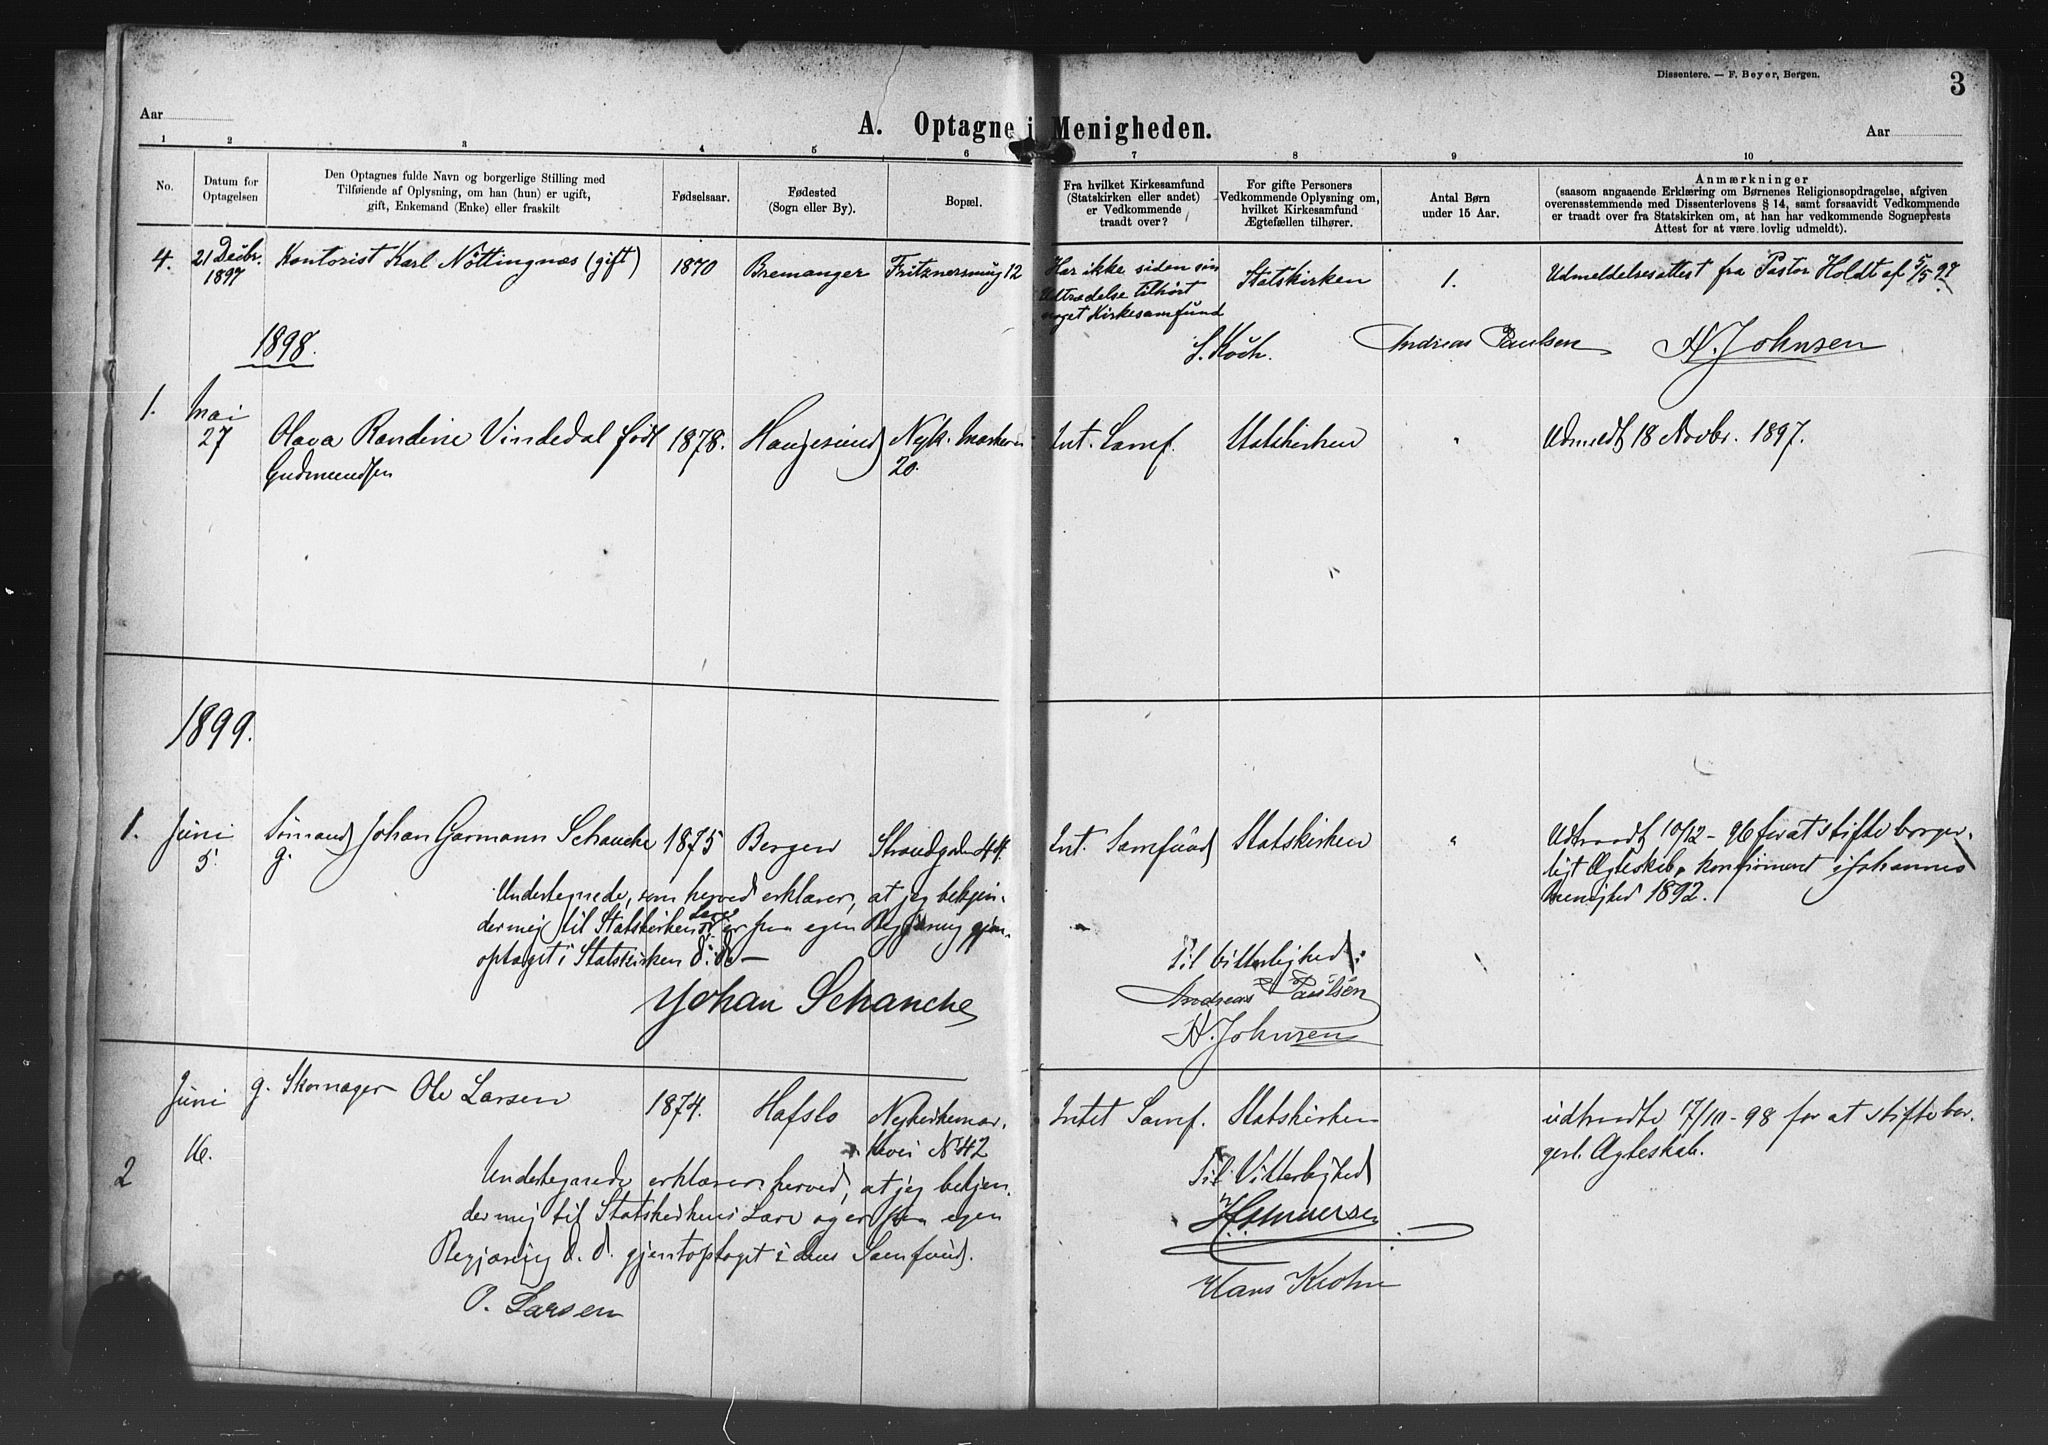 Dissentere. — F. Beyer, Bergen.
3
Aar
A. Optagne i Menigheden.
Aar
1 2 3 4 5 6 7 8 9 10
No.
Datum for
Optagelsen
Den Optagnes fulde Navn og borgerlige Stilling med
Tilføiende af Oplysning, om han (hun) er ugift,
gift, Enkemand (Enke) eller fraskilt
Fødselsaar.
Fødested
(Sogn eller By).
Bopæl.
Fra hvilket Kirkesamfund
(Statskirken eller andet)
er Vedkommende
traadt over?
For gifte Personers
Vedkommende Oplysning om,
hvilket Kirkesamfund
Ægtefællen tilhører.
Antal Børn
under 15 Aar.
Anmærkninger
(saasom angaaende Erklæring om Børnenes Religionsopdragelse, afgiven
overensstemmende med Dissenterlovens § 14, samt forsaavidt Vedkommende
er traadt over fra Statskirken om, at han har vedkommende Sogneprests
Attest for at være lovlig udmeldt).
4.
21 Decbr.
1897
Kontorist Karl Nöttingnæs (gift)
1870
Bremanger
Fritznersmug 12
Har ikke siden sin
Udtrædelse tilhört
noget Kirkesamfund
Statskirken
1.
Udmeldelsesattest fra Pastor Holdt af 5/5 97
S. Koch.
Andreas Paulsen
A. Johnsen
1898.
1.
Mai
27
Olava Randine Vindedal født
Gudmundsen
1878.
Haugesund
Nyk. Markevei
20.
Int. Samf.
Statskirken
"
Udmeldt 18 Novbr. 1897.
1899.
1.
Juni
5.
Sömand Johan Garmann Schanche
g.
1875
Bergen
Strandgaden 44.
Int. Samfund
Statskirken
"
Udtraadt 10/12 - 96 for at stifte borger-
ligt Ægteskab, konfirmeret i Johannes
Menighed 1892.
Undertegnede, som herved erklærer, at jeg bekjen-
der mig til Statskirkens Lære er paa egen Begjæring gjen-
optaget i Statskirken d. d. —
Johan Schanche
Til Vitterlighed:
Andreas Paulsen
A. Johnsen
2
Juni
16.
g. Skomager Ole Larsen
1874.
Hafslo
Nykirkemar-
kvei No 42
Intet Samf.
Statskirken
udtraadte 17/10 - 98 for at stifte bor-
gerl. Ægteskab.
Undertegnede erklærer herved, at jeg bekjen-
der mig til Statskirkens Lære og er paa egen
Begjæring d. d. gjenoptaget i dens Samfund.
O. Larsen
Til Vitterlighed
Hans Krohn